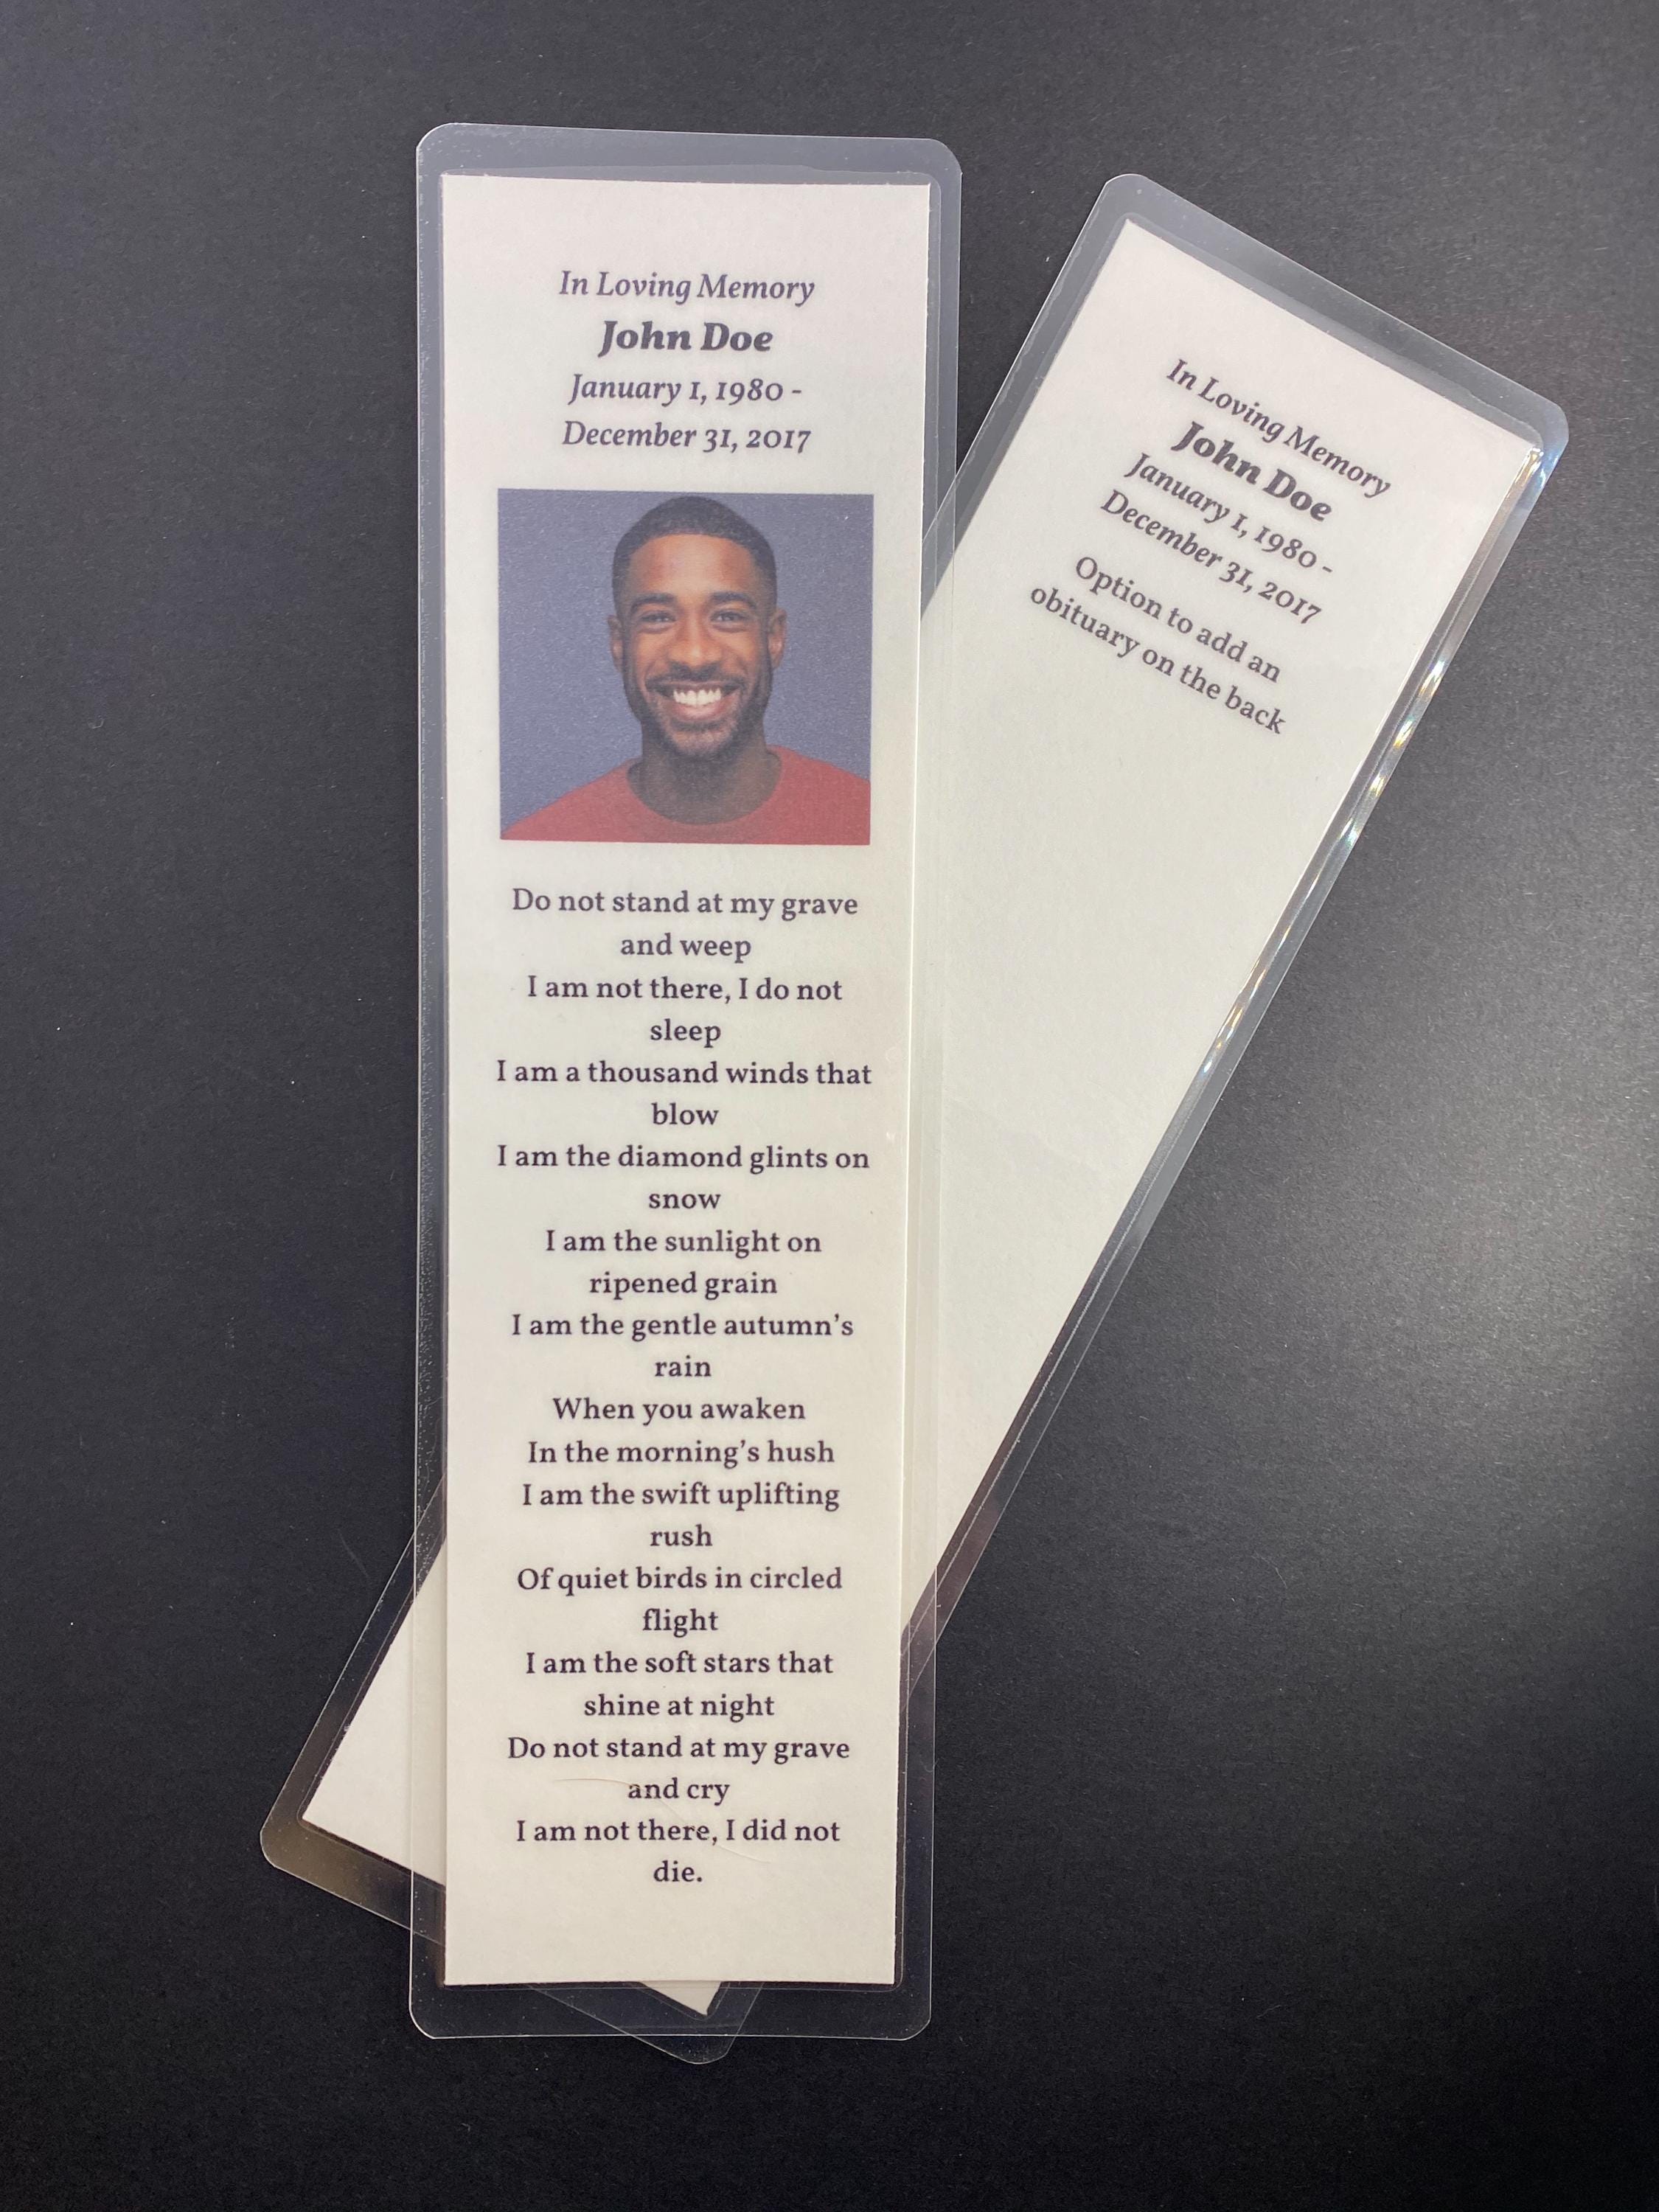 In Loving Memory
John Doe
January 1, 1980 -
December 31, 2017
Do not stand at my grave
and weep
I am not there, I do not
sleep
I am a thousand winds that
blow
I am the diamond glints on
snow
I am the sunlight on
ripened grain
I am the gentle autumn’s
rain
When you awaken
In the morning’s hush
I am the swift uplifting
rush
Of quiet birds in circled
flight
I am the soft stars that
shine at night
Do not stand at my grave
and cry
I am not there, I did not
die.
In Loving Memory
John Doe
January 1, 1980 -
December 31, 2017
Option to add an
obituary on the back